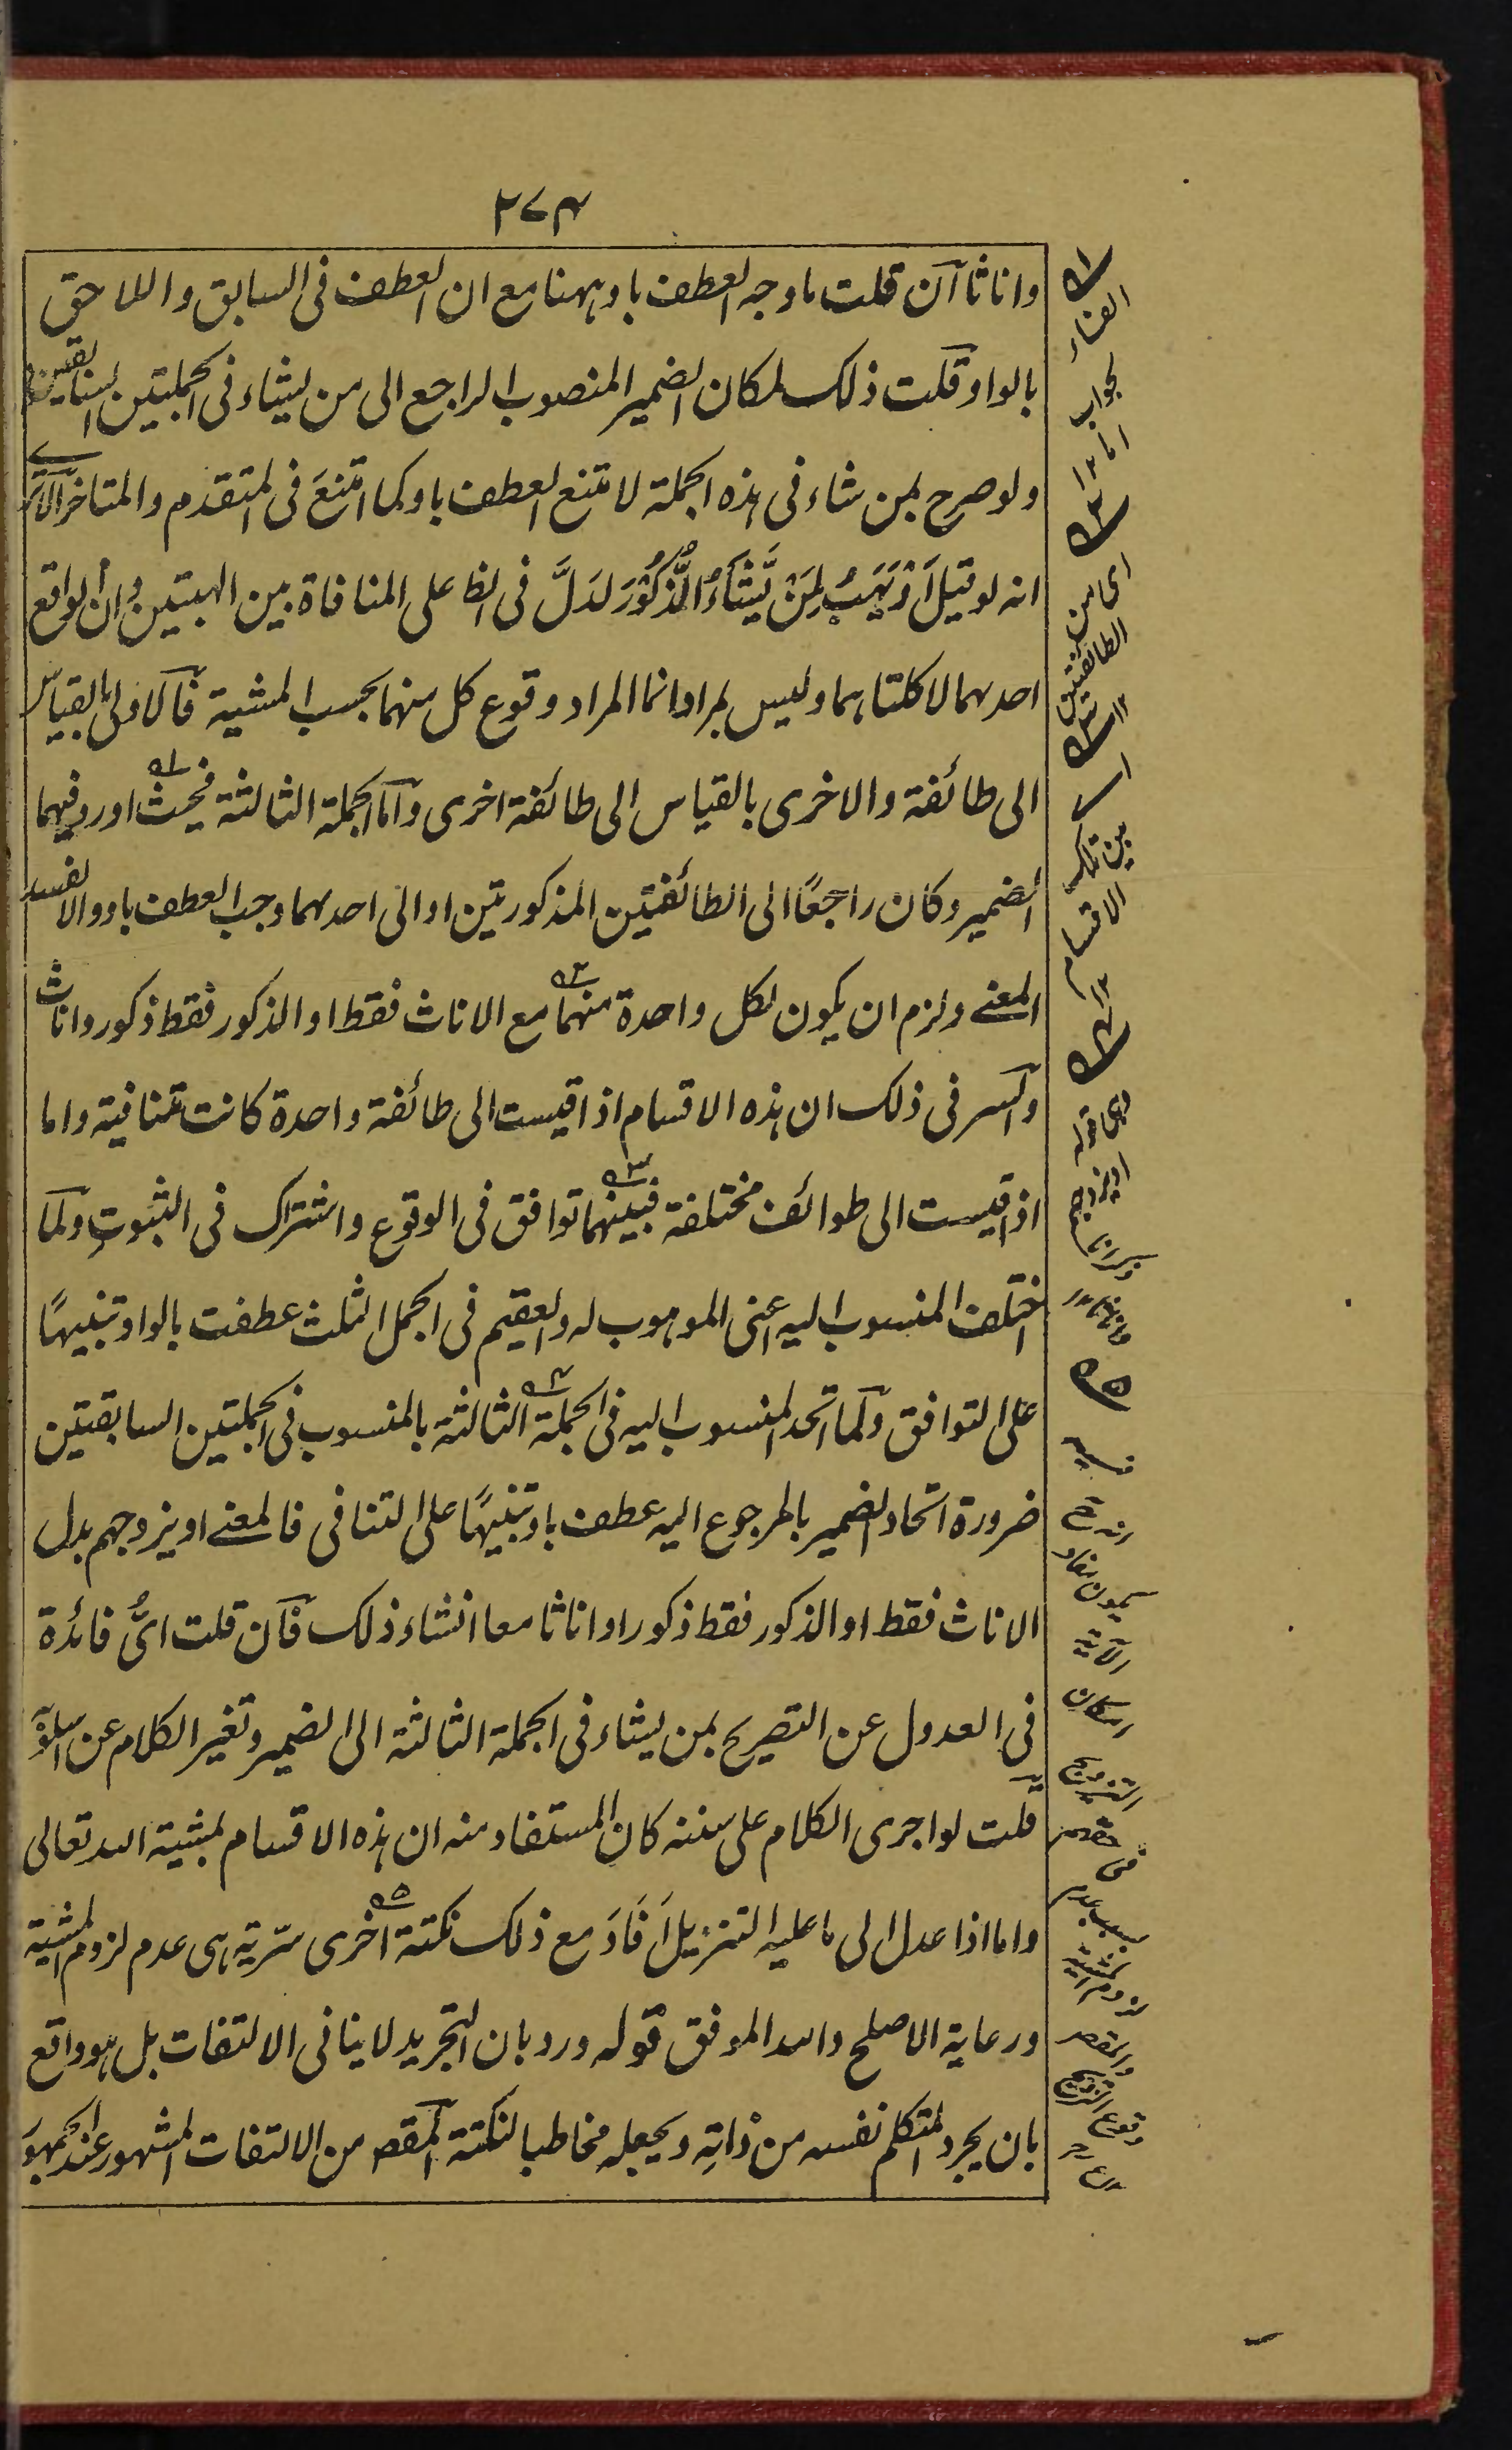 ٢٧٤
واناثا آن قلت ما وجه العطف باو ههنا مع ان العطف فى السابق واللاحق
بالواو قلت ذلك لمكان الضمير المنصوب الراجع الى من يشاء فى الجملتين السابقتين
ولو صرح بمن شاء فى هذه الجملة لامتنع العطف باو كما امتنعَ فى المتقدم والمتاخر الا ترى
انه لو قيل اَوْ يَهَبُ لِمَنْ يَّشَآءُ الذُّكُوْرَ لدَلَّ فى الظ على المنافاة بين الهبتين وان الواقع
احدهما لا كلتاهما وليس بمراد انما المراد وقوع كل منهما بحسب المشية فالاولى بالقياس
الى طائفة والاخرى بالقياس الى طائفة اخرى واما الجملة الثالثة فحيث اورد فيهما
الضمير وكان راجعًا الى الطائفتين المذكورتين او الى احدهما وجب العطف باو والا لفسد
المعنے ولزم ان يكون لكل واحدة منهما مع الاناث فقط او الذكور فقط ذكور واناث
والسر فى ذلك ان هذه الاقسام اذا قيست الى طائفة واحدة كانت متنافية واما
اذا قيست الى طوائف مختلفة فبينهما توافق فى الوقوع واشتراك فى الثبوت ولما
اختلف المنسوب اليه اعنى الموهوب له والعقيم فى الجمل الثلث عطفت بالواو تنبيهًا
على التوافق ولما اتحد المنسوب اليه فى الجملة الثالثة بالمنسوب فى الجملتين السابقتين
ضرورة اتحاد الضمير بالمرجوع اليه عطف باو تنبيهًا على التنافى فالمعنے او يزوجهم بدل
الاناث فقط او الذكور فقط ذكورا واناثا معا انشاء ذلك فآن قلت اىُّ فائدة
فى العدول عن التصريح بمن يشاء فى الجملة الثالثة الى الضمير وتغير الكلام عن اسلوبه
قلت لو اجرى الكلام على سننه كان المستفاد منه ان هذه الاقسام بمشية الله تعالى
واما اذا عدل الى ما عليه التنزيل اَفَادَ مع ذلك نكتة اخرى سّرية هى عدم لزوم المشية
ورعاية الاصلح والله الموفق قوله ورد بان التجريد لا ينافى الالتفات بل هو واقع
بان يجرد المتكلم نفسه من ذاته ويجعله مخاطبا لنكتة آلمقص من الالتفات المشهور عند الجمهور
١
الفاء
لجواب
اما ١٢
٢
اى من
الطائفتين
١٢
٣
اے
بين تلك
الاقسام
١٢
٤
وهى قوله
او يزوجهم
ذكرانا
واناثا ١٢
٥
فيه
انه ح
يكون مفاد
الآية
امكان
التزويج
فى حقهم
بسبب عدم
لزوم المشية
والمقص
وقوع التزويج